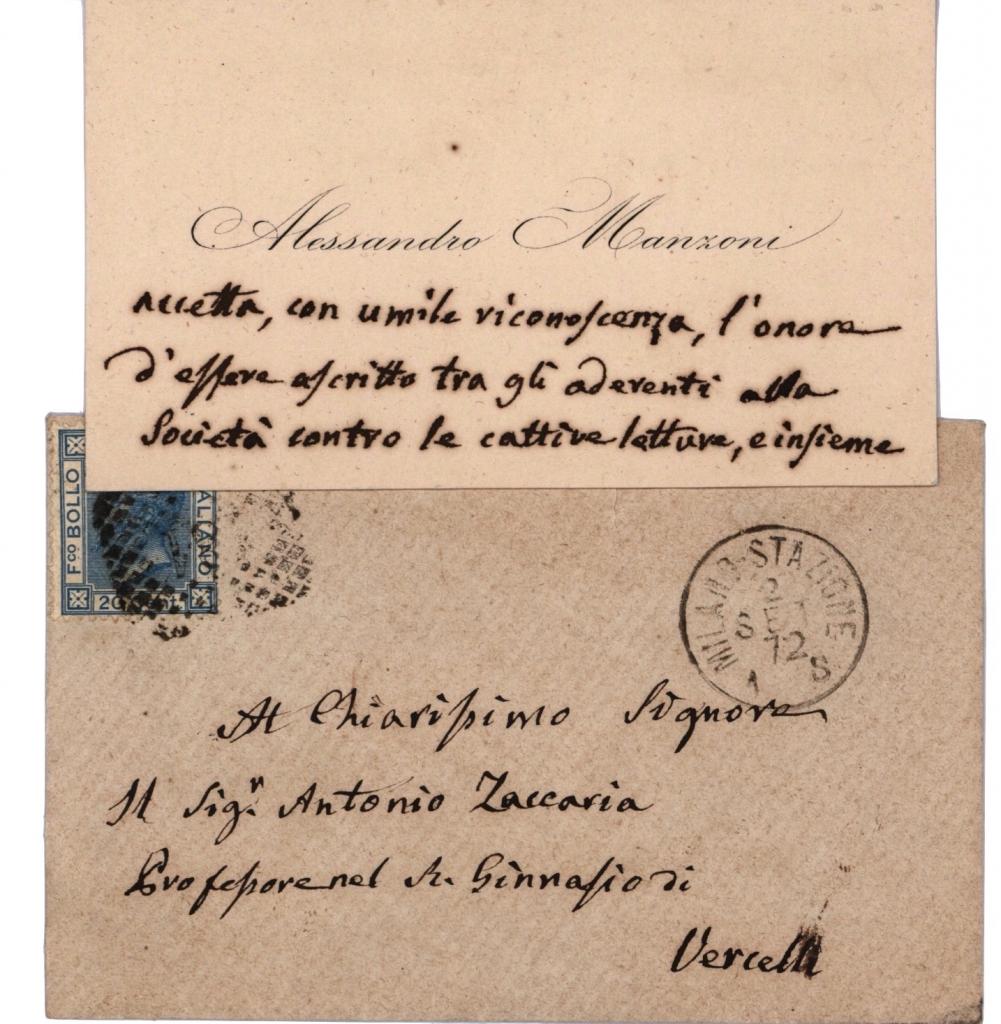 Alessandro Manzoni
accetta, con umile riconoscenza, l'onore
d'essere ascritto tra gli aderenti alla
Società contro le cattive letture, e insieme
Fco BOLLO
ALIANO
20 Cent.
MILANO-STAZIONE
2
SET
72
S
1
S
Al Chiarissimo Signore
Il Sigr Antonio Zaccaria
Professore nel R. Ginnasio di
Vercelli